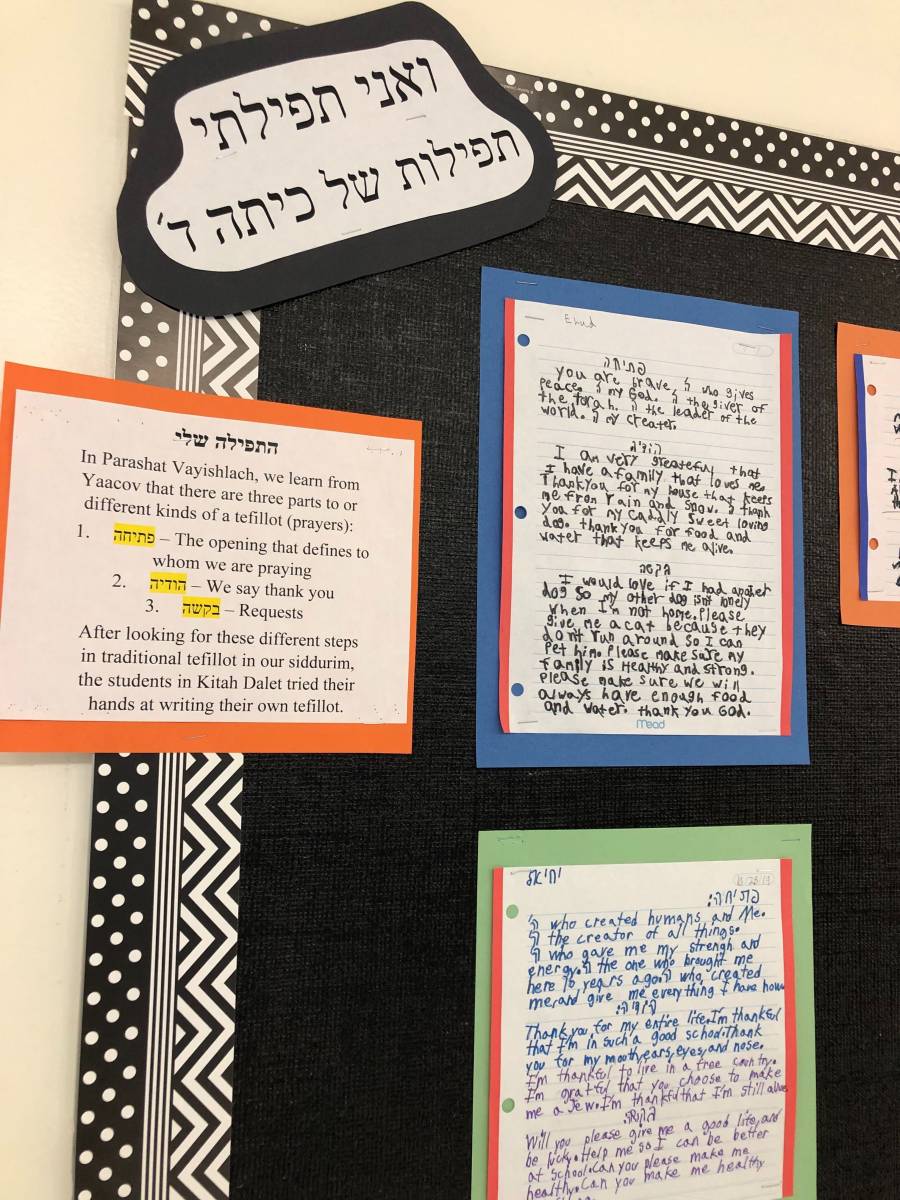 ואני תפילתי
תפילות של כיתה ד'
התפילה שלי
In Parashat Vayishlach, we learn from
Yaacov that there are three parts to or
different kinds of a tefillot (prayers):
1. פתיחה – The opening that defines to
whom we are praying
2. הודיה – We say thank you
3. בקשה – Requests
After looking for these different steps
in traditional tefillot in our siddurim,
the students in Kitah Dalet tried their
hands at writing their own tefillot.
Ehud
פתיחה
you are brave, ה' who gives
peace. ה' my God. ה' the giver of
the torah. ה' the leader of the
world. ה' my creater.
הודיה
I am very greateful that
I have a family that loves me.
Thank you for my house that keeps
me from rain and snow. I thank
you for my caddly sweet loving
dog. thank you for food and
water that keeps me alive.
בקשה
I would love if I had another
dog so my other dog isnt lonely
when I'm not home. Please
give me a cat because they
don't run around so I can
pet him. Please make sure my
family is Healthy and strong.
Please make sure we will
always have enough food
and water. thank you God.
Mead
יחיאל
פתיחה:
ה' who created humans and Me.
ה' the creator of all things.
ה' who gave me my strengh and
energy. ה' the one who brought me
here 10 years ago. ה' who created
me, and give me everything I have
הודיה:
Thank you for my entire life. I'm thankful
that I'm in such a good school. Thank
you for my mouth, ears, eyes, and nose.
I'm thankful to live in a free country.
I'm gratful that you choose to make
me a Jew. I'm thankful that I'm still
בקשה:
Will you please give me a good life, and
be lucky. Help me so I can be better
at school. Can you please make me
healthy. Can you make me healthy